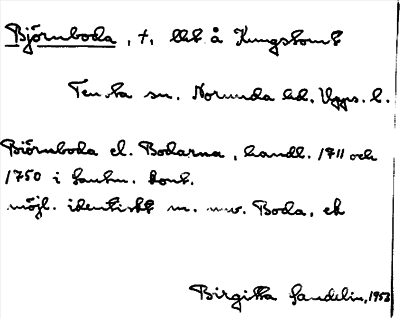 Björnboda, †, [...] å Kungstomt
Tensta sn. Norunda hd, Upps. l.
Biörnboda el. Bodarna, handl. 1711 och
1750 i lantm. kont.
möjl. identiskt m. nuv. Boda, ek
Birgitta Sandelin, 1953